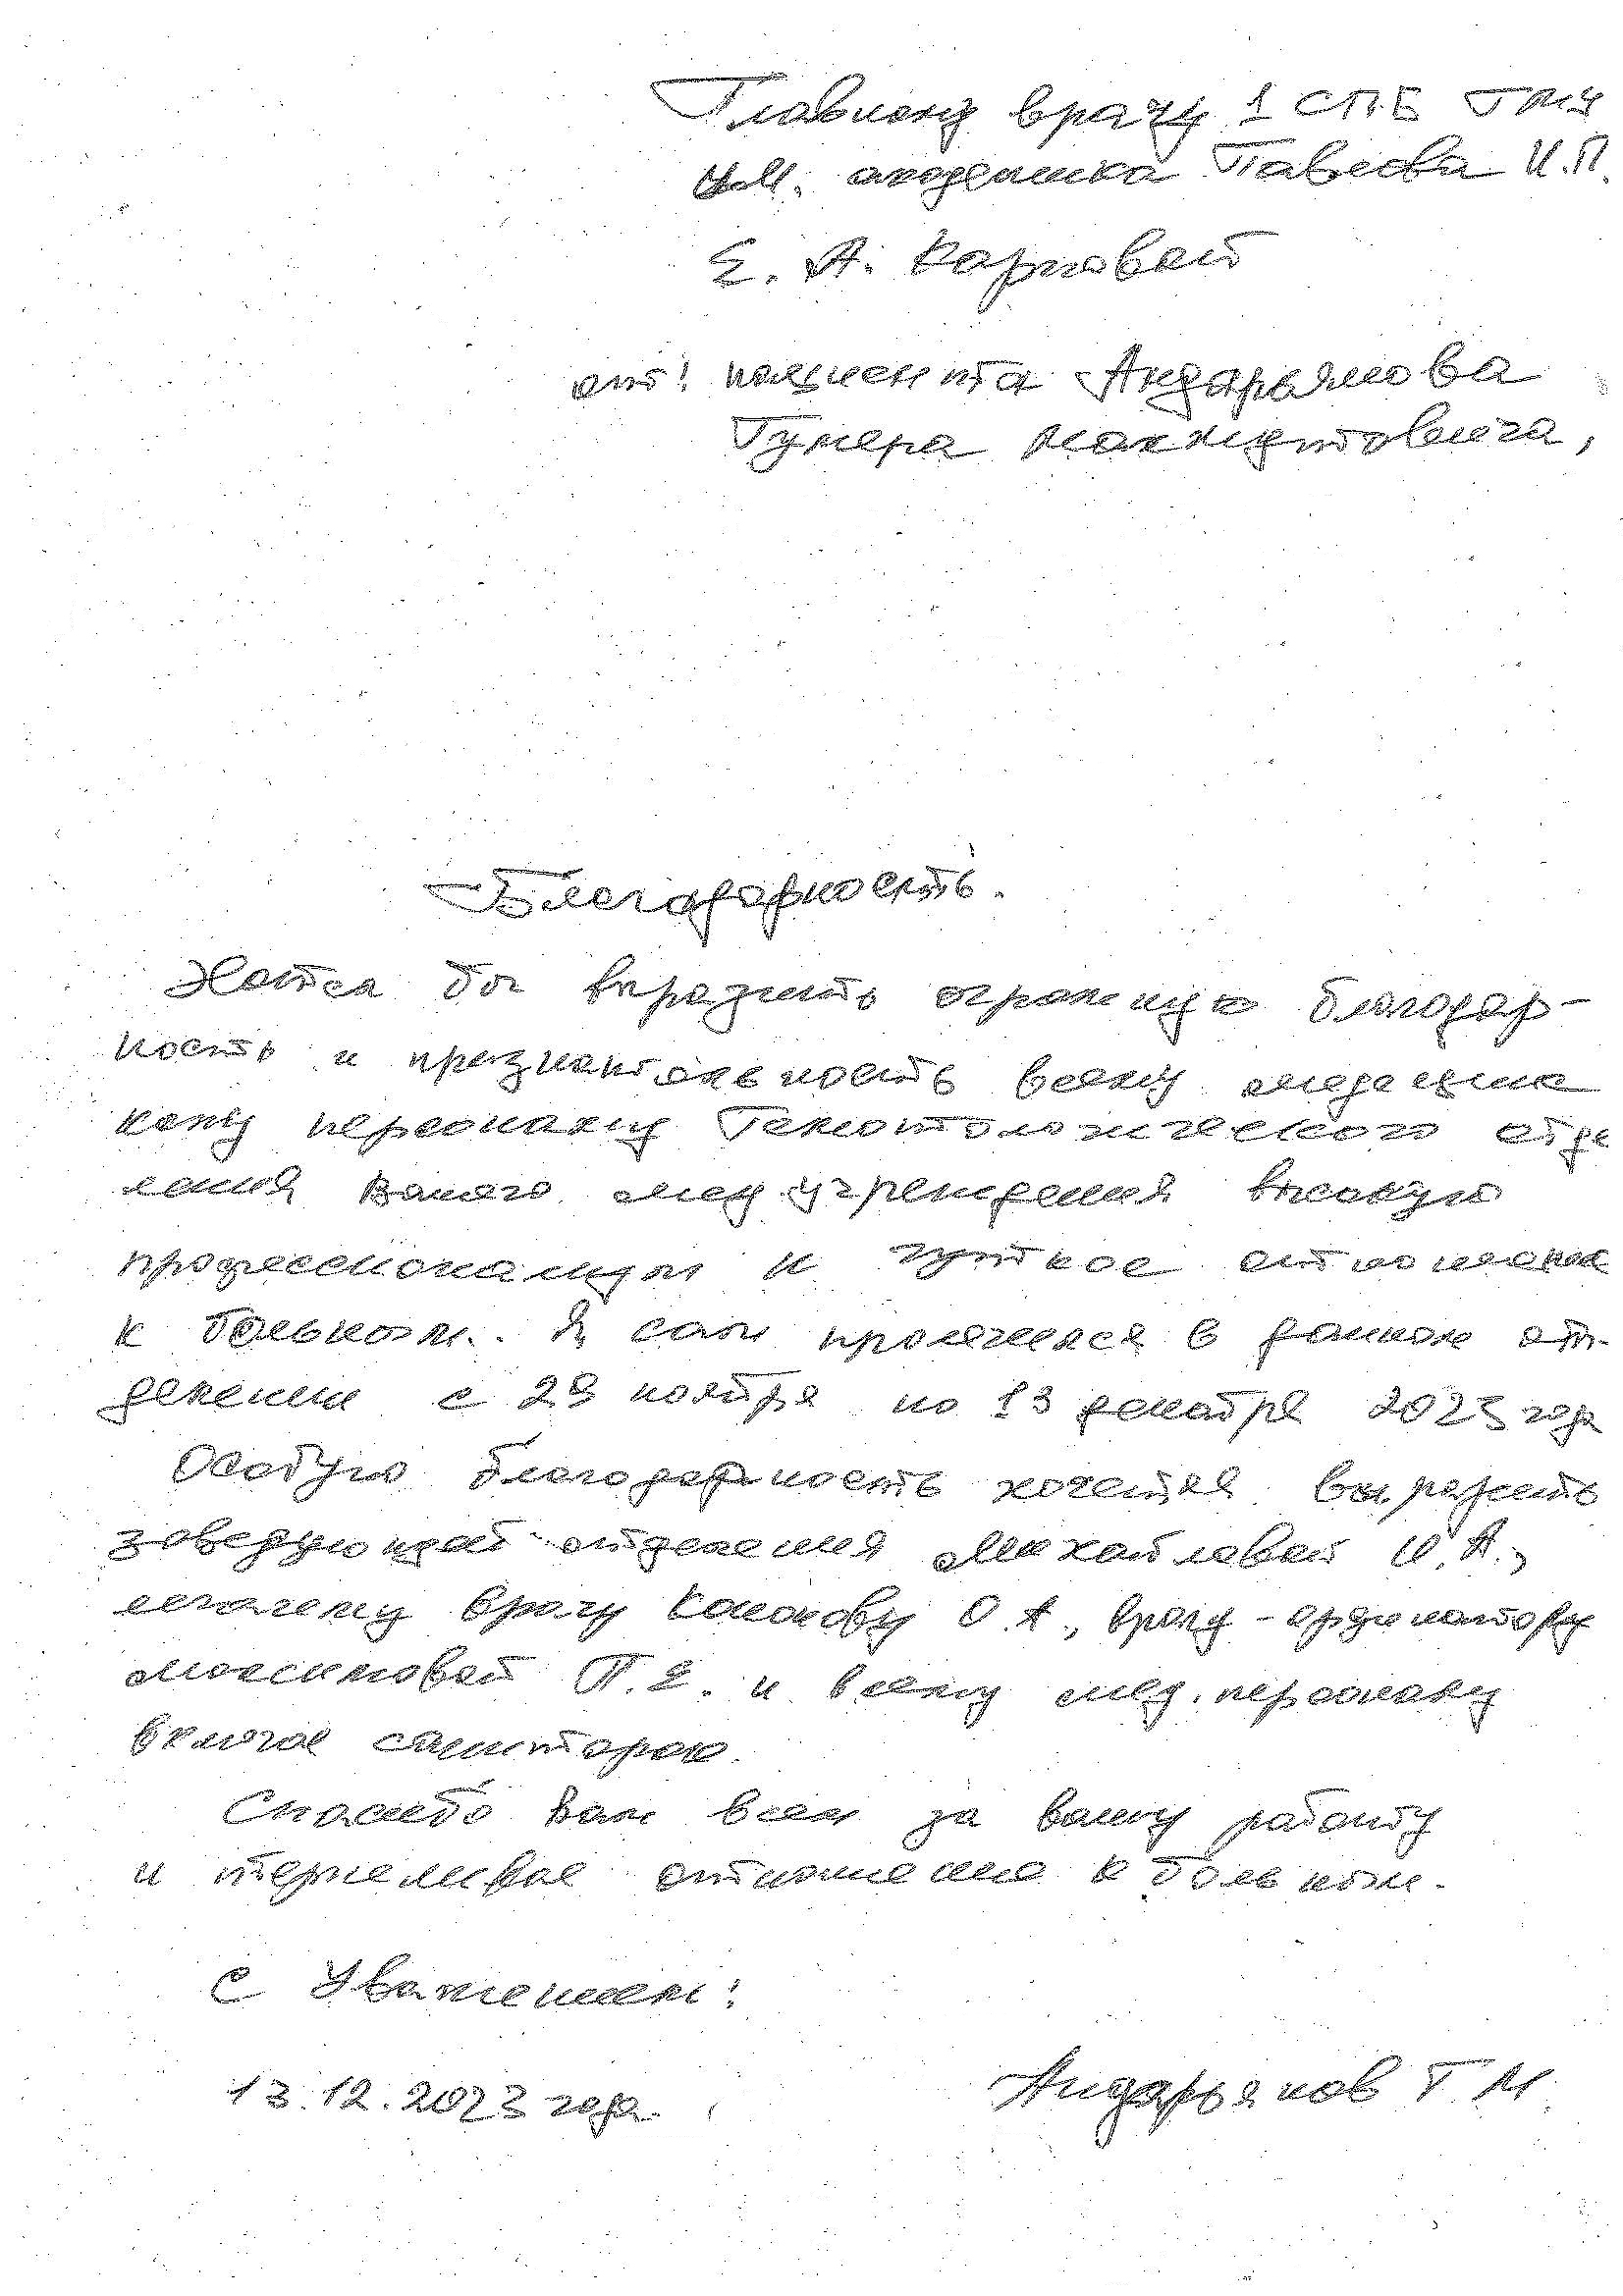 Главному врачу 1 СПб ГМУ
им. академика Павлова И.П.
Е. А. Карповой
от: пациента Андарьянова
Гумера Махмутовича,
Благодарность.
Хотся бы выразить огромную благодар-
ность и признательность всему медицинс
кому персоналу Гематологического отде
ления Вашего мед. учреждения высокую
профессионализм и чуткое отношение
к больным. Я сам пролечился в данном от-
делении с 29 ноября по 13 декабря 2023 года
Особую благодарность хочется выразить
заведующей отделения Михайловой И. А.,
лечачему врачу Кононову О. А., врачу-ординатору
Максимовой П. Е. и всему мед. персоналу
включая санитарок.
Спасибо Вам всем за вашу работу
и терпеливое отношение к больным.
С Уважением:
13.12.2023 года.
Андарьянов Г. М.